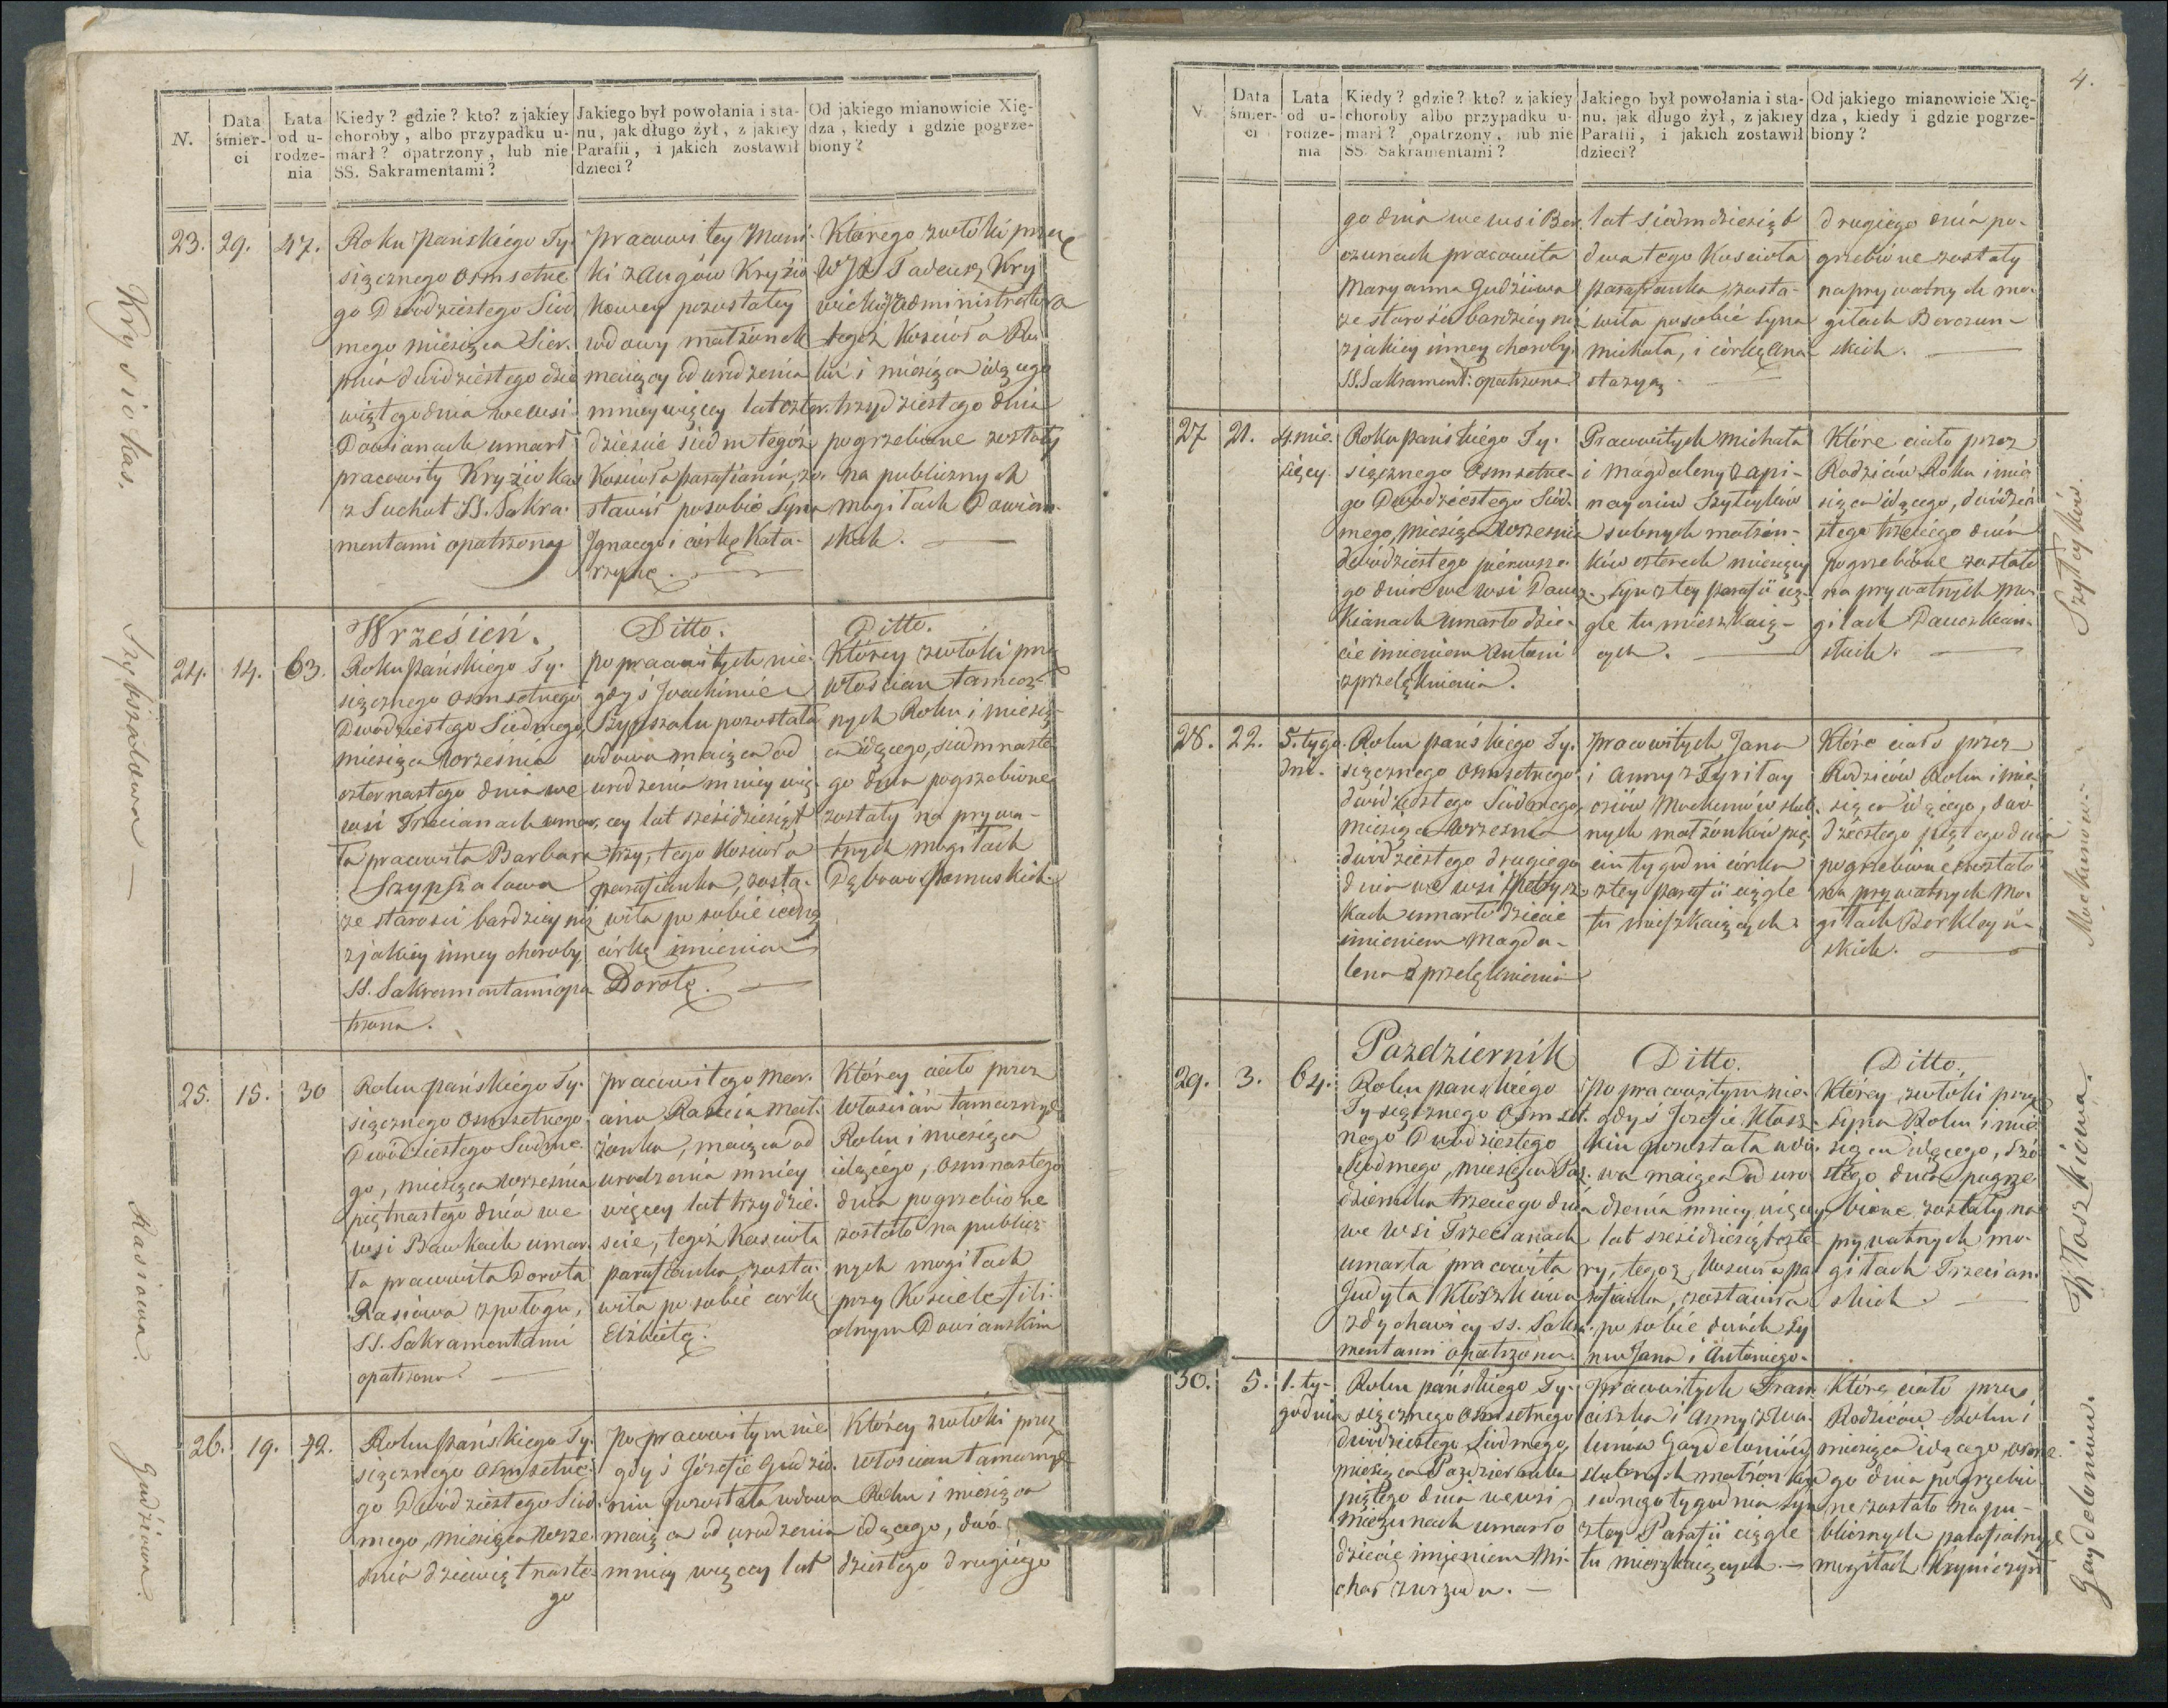 N.
Data śmierci
Łata od urodzenia
Kiedy? gdzie? kto? z jakiey
choroby, albo przypadku u-
marł? opatrzony, lub nie
SS. Sakramentami?
Jakiego był powołania i sta-
nu, jak długo żył, z jakiey
Parafii, i jakich zostawił
dzieci?
Od jakiego mianowicie Xię-
dza, kiedy i gdzie pogrze-
biony?
23.
29.
47.
Roku Pańskiego Ty-
siącznego Osmsetne
go Dwódziestego Siod
mego miesiąca Sier-
pnia dwódziestego dzie
wiątego dnia we wsi
Dowianach umarł
pracowity Kryżiokas
z Suchot SS. Sakra-
mentami opatrzony
pracowitey
ki z Augów Kryżio
kowey pozostałey
wdowy małżonek
maiący od urodzenia
mniey więcey lat czter-
dzieście siedm tegóż
Kościoła parafianin, zo-
stawił po sobie Syna
Ignacego i córkę Kata-
rzynę.
Którego zwłoki przez
WJX Tadeusz Kry
wicki Administratora
tegoż Kościoła Ro
ku i miésiąca idącego
trzydziestego dnia
pogrzebione zostały
na publicznych
mogiłach Dowian-
skich.
Krysiokas.
Wrześień.
Ditto.
Ditto.
24.
14.
63.
Roku Pańskiego Ty-
siącznego Osmsetnego
Dwódziestego Siodmego
miesiąca Września
czternastego dnia we
wsi Trzecianach umar-
ła pracowita Barbara
Szypszałowa
ze starości bardziey niż
z jakiey inney choroby
SS. Sakramentami opa
trzona.
po pracowitych nie
gdyś Joachimie
Szypszału pozostała
wdowa maiąca od
urodzenia mniey wię-
cey lat sześćdziesiąt
trzy, tego Kościoła
parafianka, zosta-
wiła po sobie iedną
córkę imieniem
Dorotę.
Którey zwłoki prze
włościan tamecz-
nych Roku i miesią-
ca idącego, siedmnaste-
go dnia pogrzebione
zostały na prywa-
tnych mogiłach
Szybszałowa
25.
15.
30
Roku pańskiego Ty-
siącznego Osmsetnego
Dwódziestego Siodme-
go, miesiąca września
piętnastego dnia we
wsi Bawkach umar-
ła pracowita Dorota
Rasiowa z połogu,
SS. Sakramentami
opatrzona.
pracowitego Mar-
cina Rasia mał-
żonka, maiąca od
urodzenia mniey
więcey lat trzydzie-
scie, tegóż Kościoła
parafianka, zosta-
wiła po sobie córkę
Elżbietę.
Którey ciało przez
włościan tamecznych
Roku i miesiąca
idącégo, Osmnastego
dnia pogrzebione
zostało na publicz-
nych mogiłach
przy Kościele fili-
alnym Dowianskim
Rasiowa.
26.
19.
72.
Roku Pańskiego Ty-
siącznego Osmsetne-
go Dwódziestego Siod-
mego, miesiąca Wrze-
śnia dziewiętnaste-
go
po pracowitym nie
gdyś Józefie Gudzio-
niu pozostała wdowa
maiąca od urodzenia
mniey więcey lat
Którey zwłoki prze
włościan tamecznych
Roku i miesiąca
idącego, dwó-
dziestego drugiégo
Gudziowa.
4.
N.
Data śmierci
Lata od urodzenia
Kiedy? gdzie? kto? z jakiey
choroby albo przypadku u-
marł? opatrzony, lub nie
SS. Sakramentami?
Jakiego był powołania i sta-
nu, jak długo żył, z jakiey
Parafii, i jakich zostawił
dzieci?
Od jakiego mianowicie Xię-
dza, kiedy i gdzie pogrze-
biony?
go dnia we wsi Ber-
czunach pracowita
Maryanna Gudziowa
ze starości bardziey niż
z jakiey inney choroby
SS. Sakrament: opatrzona.
lat siedmdziesiąt
dwa tego Kościoła
parafianka, zosta-
wiła po sobie Syna
Michała, i córkę Ana-
stazyą.
drugiego dnia po-
grzebione zostały
na prywatnych mo-
giłach Berczun-
skich.
27
21.
4 mie-
sięcy.
Roku Pańskiego Ty-
siącznego Osmsetne-
go Dwódziestego Siód-
mego, miesiąca Wrzesnia
dwódziestego pierwsze-
go dnia we wsi Daucz-
kianach umarło dzie-
cie imieniem Antoni
z przelęknienia.
Pracowitych Michała
i Magdaleny z
Szytyków
slubnych małżon-
ków czterech miesięcy
Syn z tey Parafii cią-
gle tu mieszkaią-
cych.
Które ciało przez
Rodziców Roku i mie
siąca idącego, dwódzie
stego trzeciego dnia
pogrzebione zostało
na prywatnych mo-
giłach Dauczkian-
skich.
Szytyków.
28.
22.
5. tygo-
dni.
Roku pańskiego Ty-
siącznego Osmsetnego
dwódziestego Siódmego,
Miesiąca Wrzesnia
dwódziestego drugiego
dnia we wsi
kach umarło dziecie
imieniem Magda-
lena z przelęknienia
pracowitych Jana
i Anny z
Mockunów slub-
nych małżonków pię-
ciu tygodni córka
z tey parafii ciągle
tu mieszkaiących.
Które ciało przez
Rodziców Roku i mie
siąca idącego, dwó
dziestego piątego dnia
pogrzebione zostało
na prywatnych Mo-
giłach
skich.
Mockunów.
Pazdziernik
Ditto.
Ditto.
29.
3.
64.
Roku pańskiego
Tysiącznego Osmset-
nego Dwódziestego
Siodmego, miesiąca Paź-
dziernika trzeciego dnia
we wsi Trzecianach
umarła pracowita
Judyta Kłoszkiowa
z dychawicy SS. Sakra-
mentami opatrzona.
po pracowitym nie-
gdyś Jozefie Kłosz-
kiu pozostała wdo-
wa maiąca od uro-
dzenia mniey więcey
lat sześćdziesiąt czte-
ry, tegoż Kościoła pa-
rafianka, zostawiła
po sobie dwóch Sy
nów Jana i Antoniego.
Którey zwłoki przez
Syna Roku i mie
siąca idącego, Szó-
stego dnia pogrze
bione zostały na
prywatnych mo-
giłach Trzecian-
skich.
Kłoszkiowa.
30.
5.
1. ty-
godnia
Roku pańskiego Ty-
siącznego Osmsetnego
dwódziestego Siódmego,
miesiąca Pazdziernika
piątego dnia we wsi
Mieżunach umarło
dziecie imieniem Mi-
chał z wrzodu.
Pracowitych Fran-
ciszka i Anny z
Gaydeloniów
slubnych małżonków
iednego tygodnia Syn
z tey Parafii ciągle
tu mieszkaiących.
Które ciało przez
Rodziców Roku i
miesiąca idącego, osme-
go dnia pogrzebio-
ne zostało na pu-
blicznych parafialnych
mogiłach